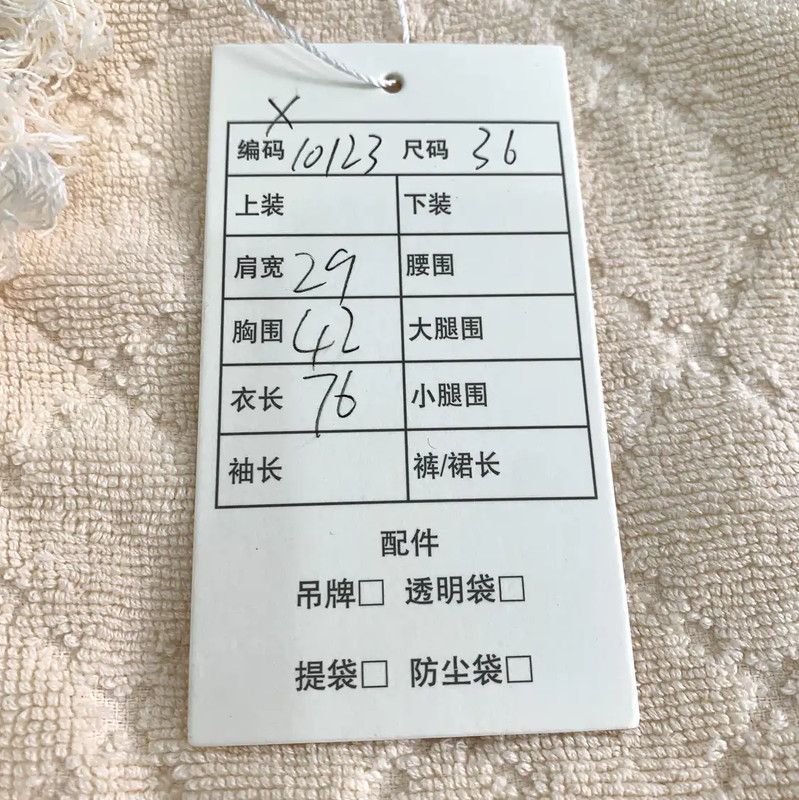 X
编码 10123 尺码 36
上装 下装
肩宽 29 腰围
胸围 42 大腿围
衣长 76 小腿围
袖长 裤/裙长
配件
吊牌□ 透明袋□
提袋□ 防尘袋□